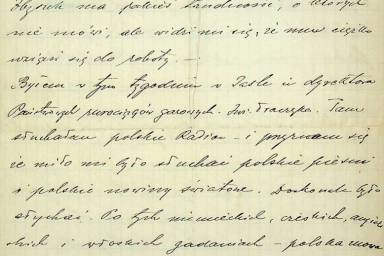 ma jakieś trudności, o których
nie mówi, ale widzi mi się, że mu ciężko
wziąść się do roboty. —
Byłem w tym tygodniu w Jaśle u dyrektora
Państwowych gazowych. Inż. Tam
słuchałam polskie Radio — i przyznam się
że miło mi było słuchać polskie pieśni
i polskie nowiny światowe. Doskonale było
słychać. Po tych niemieckich, czeskich, angiel-
skich i włoskich gadaniach — polska mowa